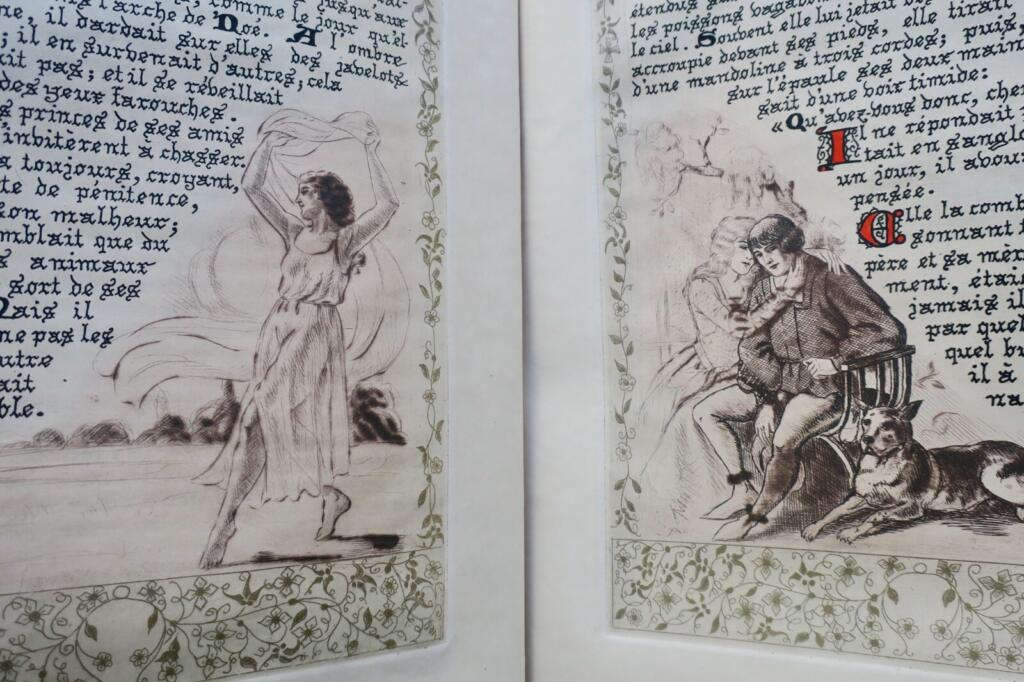 l'arche de Noé. A l'ombre
, il dardait sur elles des javelots
; il en survenait d'autres; cela
ait pas; et il se réveillait
des yeux farouches.
princes de ses amis
invitèrent à chasser.
toujours, croyant,
te de pénitence,
son malheur;
mblait que du
s animaux
sort de ses
Mais il
ne pas les
autre
ait
ble.
étendus sur
les poissons vagabon
le ciel. Souvent elle lui jetait des
accroupie devant ses pieds, elle tirait
d'une mandoline à trois cordes; puis,
sur l'épaule ses deux main
sait d'une voix timide:
«Qu'avez-vous donc, cher
Il ne répondait
tait en sanglo
un jour, il avoua
pensée.
Elle la comb
sonnant
père et sa mèr
ment, étai
jamais il
par quel
quel bu
il à
na